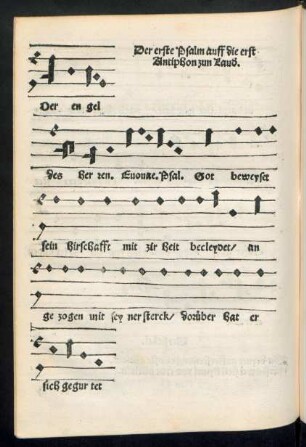 Der erste Psalm auff die erst
Antiphon zun Laud.
Der en gel
des Her ren. Euouae. Psal. Got beweyset
sein hirschafft mit zir heit becleydet/ an
ge zogen mit sey ner sterck/ dorüber hat er
sich gegur tet